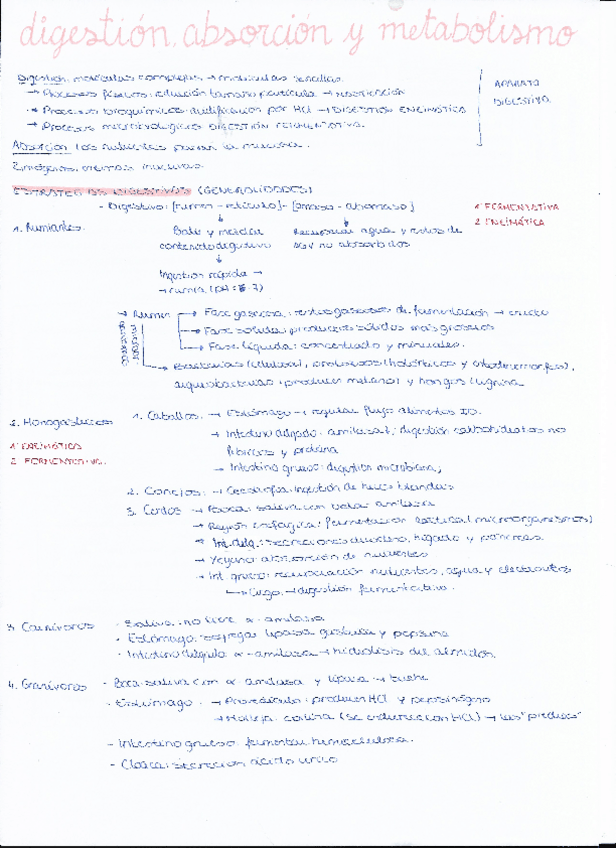 digestión, absorción y metabolismo
Digestión: moléculas complejas → moléculas sencillas.
→ Procesos físicos: reducción tamaño partícula →
→ Procesos bioquímicos: acidificación por HCl → DIGESTIÓN ENZIMÁTICA
→ Procesos microbiológicos: DIGESTIÓN FERMENTATIVA.
APARATO
DIGESTIVO
Absorción: los nutrientes pasan la mucosa.
ESTRATEGIAS DIGESTIVAS (GENERALIDADES)
- Digestivo: [rumen - retículo] - [omaso - abomaso]
1º FERMENTATIVA
2º ENZIMÁTICA
1. Rumiantes.
Bate y mezcla
contenido digestivo
Recuperar agua y restos de
AGV no absorbidos
Ingestión rápida →
→ rumia (pH = 7)
→ Rumen
→ Fase gaseosa: restos gaseosos de fermentación → eructo
→ Fase sólida: productos sólidos más groseros
→ Fase líquida: concentrado y minerales.
→ Bacterias (celulosa), protozoos (holótricos y entodinomorfos),
arqueobacterias (producen metano) y hongos (lignina
2. Monogástricos
1º ENZIMÁTICA
2º FERMENTATIVA.
1. Caballos. → Estómago → regular flujo alimentos ID.
→ Intestino delgado: amilasa ↓; digestión carbohidratos no
fibrosos y proteína
→ Intestino grueso: digestión microbiana,
2. Conejos: → Cecotrofia: ingestión de heces blandas
3. Cerdos → Boca: saliva con amilasa
→ Región esofágica: fermentación láctica (microorganismos)
→ Int. delg.: secreciones duodeno, hígado y páncreas.
→ Yeyuno: absorción de nutrientes
→ Int. grueso: recuperación nutrientes, agua y electrolitos
→ Ciego → digestión fermentativa.
3. Carnívoros
- Saliva: no tiene α-amilasa
- Estómago: segrega lipasa gástrica y pepsina
- Intestino delgado: α-amilasa → hidrólisis del almidón
4. Granívoros
- Boca: saliva con α amilasa y lipasa → buche
- Estómago. → Proventrículo: producen HCl y pepsinógeno
→ Molleja: coilina (se endurece con HCl) → las "piedras"
- Intestino grueso: fermentan hemicelulosa.
- Cloaca: secreción ácido úrico